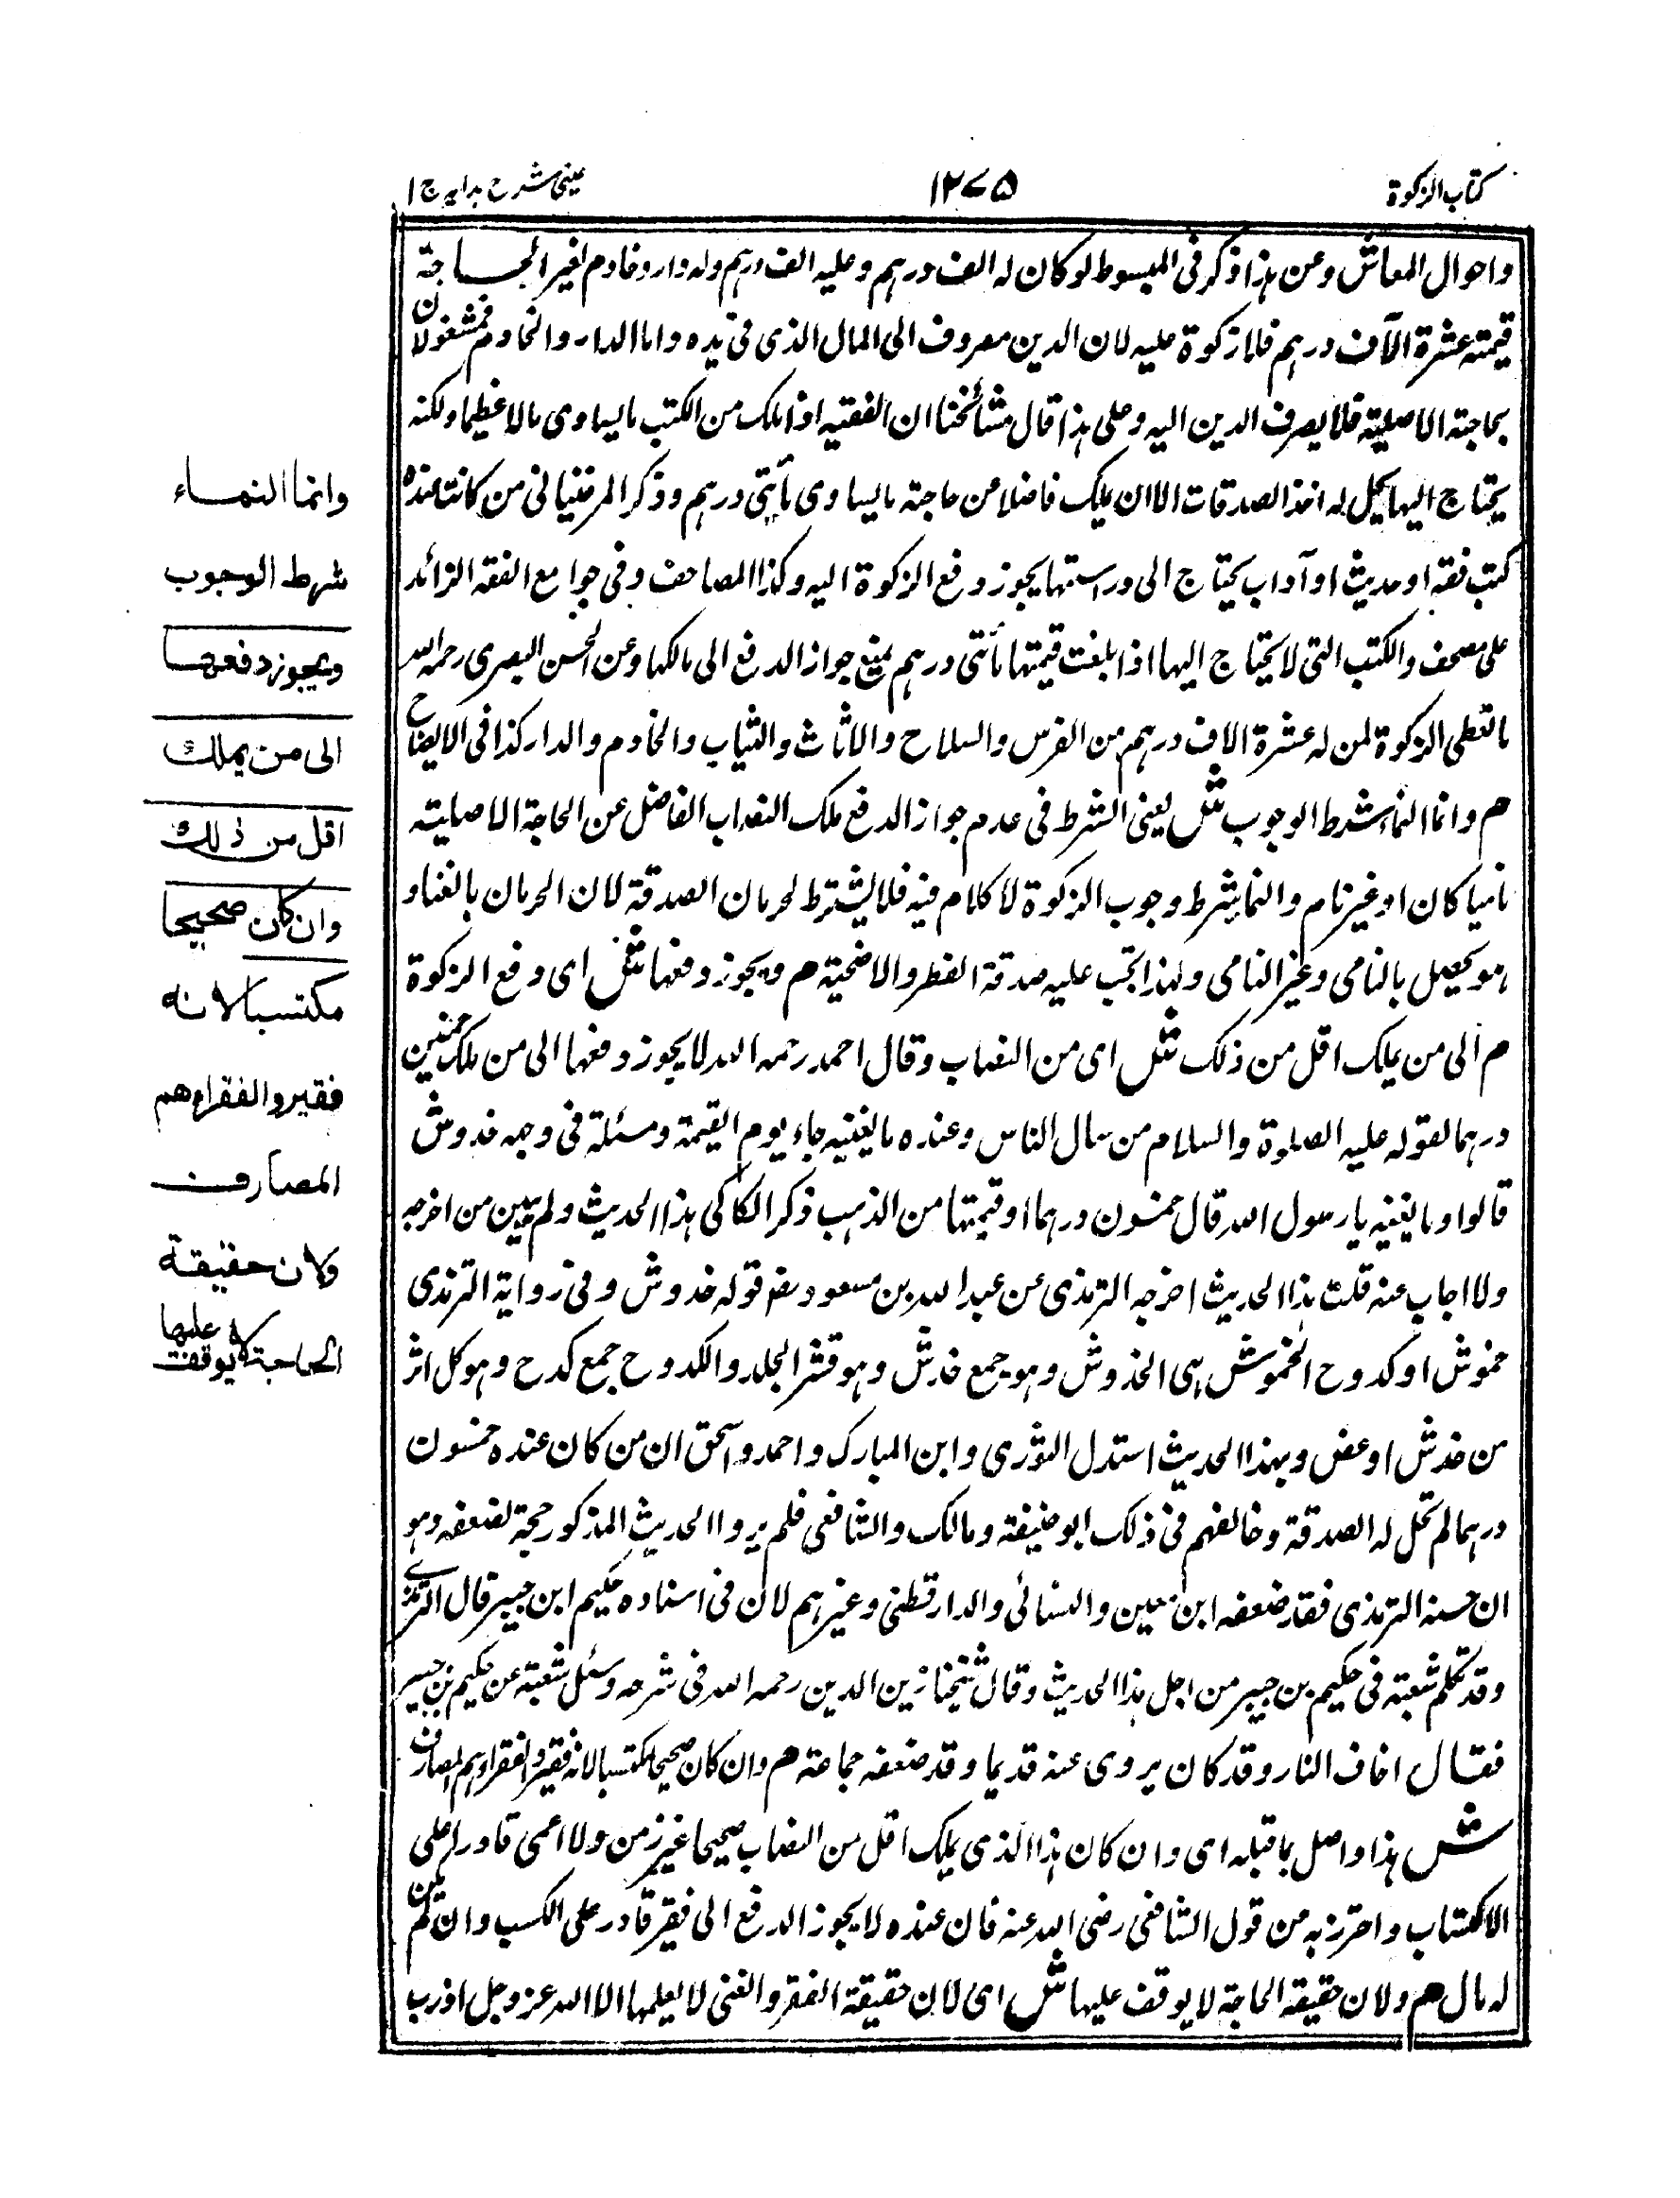 كتاب الزكوة
۱۲۷۵
عینی شرح ہدایہ ج ۱
واحوال المعاش وعن هذا ذكر فى المبسوط لو كان له الف درهم وعليه الف درهم وله دار وخادم لغير الحاجة
قيمته عشرة آلاف درهم فلا زكوة عليه لان الدين مصروف الى المال الذى فى يده واما الدار والخادم فمشغولان
بحاجته الاصلية فلا يصرف الدين اليه وعلى هذا قال مشائخنا ان الفقيه اذا ملك من الكتب ما يساوى مالا عظيما ولكنه
يحتاج اليها يحل له اخذ الصدقات الا ان يملك فاضلا عن حاجته ما يساوى مأتى درهم وذكر المرغينانى من كانت عنده
كتب فقه او حديث او آداب يحتاج الى دراستها يجوز دفع الزكوة اليه وكذا المصاحف وفى جوامع الفقه الزائد
على مصحف والكتب التى لا يحتاج اليها اذا بلغت قيمتها مأتى درهم يمنع جواز الدفع الى مالكها وعن الحسن البصرى رحمه الله
ما تعطى الزكوة لمن له عشرة الاف درهم من الفرس والسلاح والاثاث والثياب والخادم والدار كذا فى الايضاح
م وانما النماء شرط الوجوب ش يعنى الشرط فى عدم جواز الدفع ملك النصاب الفاضل عن الحاجة الاصلية
ناميا كان او غير نام والنما شرط وجوب الزكوة لا كلام فيه فلا يشترط لحرمان الصدقة لان الحرمان بالغنا و
هو يحصل بالنامى وغير النامى ولهذا تجب عليه صدقة الفطر والاضحية م ويجوز دفعها ش اى دفع الزكوة
م الى من يملك اقل من ذلك ش اى من النصاب وقال احمد رحمه الله لا يجوز دفعها الى من ملك خمسين
درهما لقوله عليه الصلوة والسلام من سال الناس وعنده ما يغنيه جاء يوم القيمة ومسئلة فى وجهه خدوش
قالوا وما يغنيه يا رسول الله قال خمسون درهما او قيمتها من الذهب ذكر الكاكى هذا الحديث ولم يبين من اخرجه
ولا اجاب عنه قلت هذا الحديث اخرجه الترمذى عن عبد الله بن مسعود رض قوله خدوش وفى رواية الترمذى
خموش او كدوح الخموش هى الخدوش وهو جمع خدش وهو قشر الجلد والكدوح جمع كدح وهو كل اثر
من خدش او عض وبهذا الحديث استدل الثورى وابن المبارك واحمد واسحق ان من كان عنده خمسون
درهما لم تحل له الصدقة وخالفهم فى ذلك ابو حنيفة ومالك والشافعى فلم يروا الحديث المذكور حجة لضعفه وهو
ان حسنه الترمذى فقد ضعفه ابن معين والنسائى والدارقطنى وغيرهم لان فى اسناده حكيم ابن جبير قال الترمذى
وقد تكلم شعبة فى حكيم بن جبير من اجل هذا الحديث وقال شيخنا زين الدين رحمه الله فى شرحه وسئل شعبة عن حكيم بن جبير
فقال اخاف النار وقد كان يروى عنه قديما وقد ضعفه جماعة م وان كان صحيحا مكتسبا لانه فقير والفقراء هم المصارف
ش هذا واصل بما قبله اى وان كان هذا الذى يملك اقل من النصاب صحيحا غير زمن ولا اعمى قادرا على
الاكتساب واحترز به من قول الشافعى رضى الله عنه فان عنده لا يجوز الدفع الى فقير قادر على الكسب وان لم يكن
له مال م ولان حقيقة الحاجة لا يوقف عليها ش اى لان حقيقة الفقر والغنى لا يعلمها الا الله عز وجل اذ رب
وانما النماء
شرط الوجوب
ويجوز دفعها
الى من يملك
اقل من ذلك
وان كان صحيحا
مكتسبا لانه
فقير والفقراء هم
المصارف
ولان حقيقة
الحاجة لا يوقف عليها